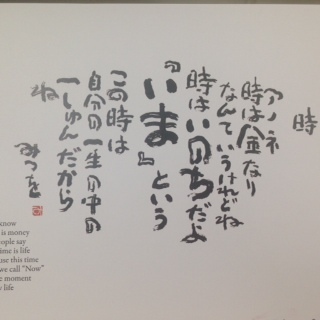 時
アノネ
時は金なり
なんていうけれどね
時はいのちだよ
『いま』という
この時は
自分の一生の中の
一しゅんだから
ね
みつを
know
is money
ople say
ime is life
use this time
we call "Now"
e moment
y life